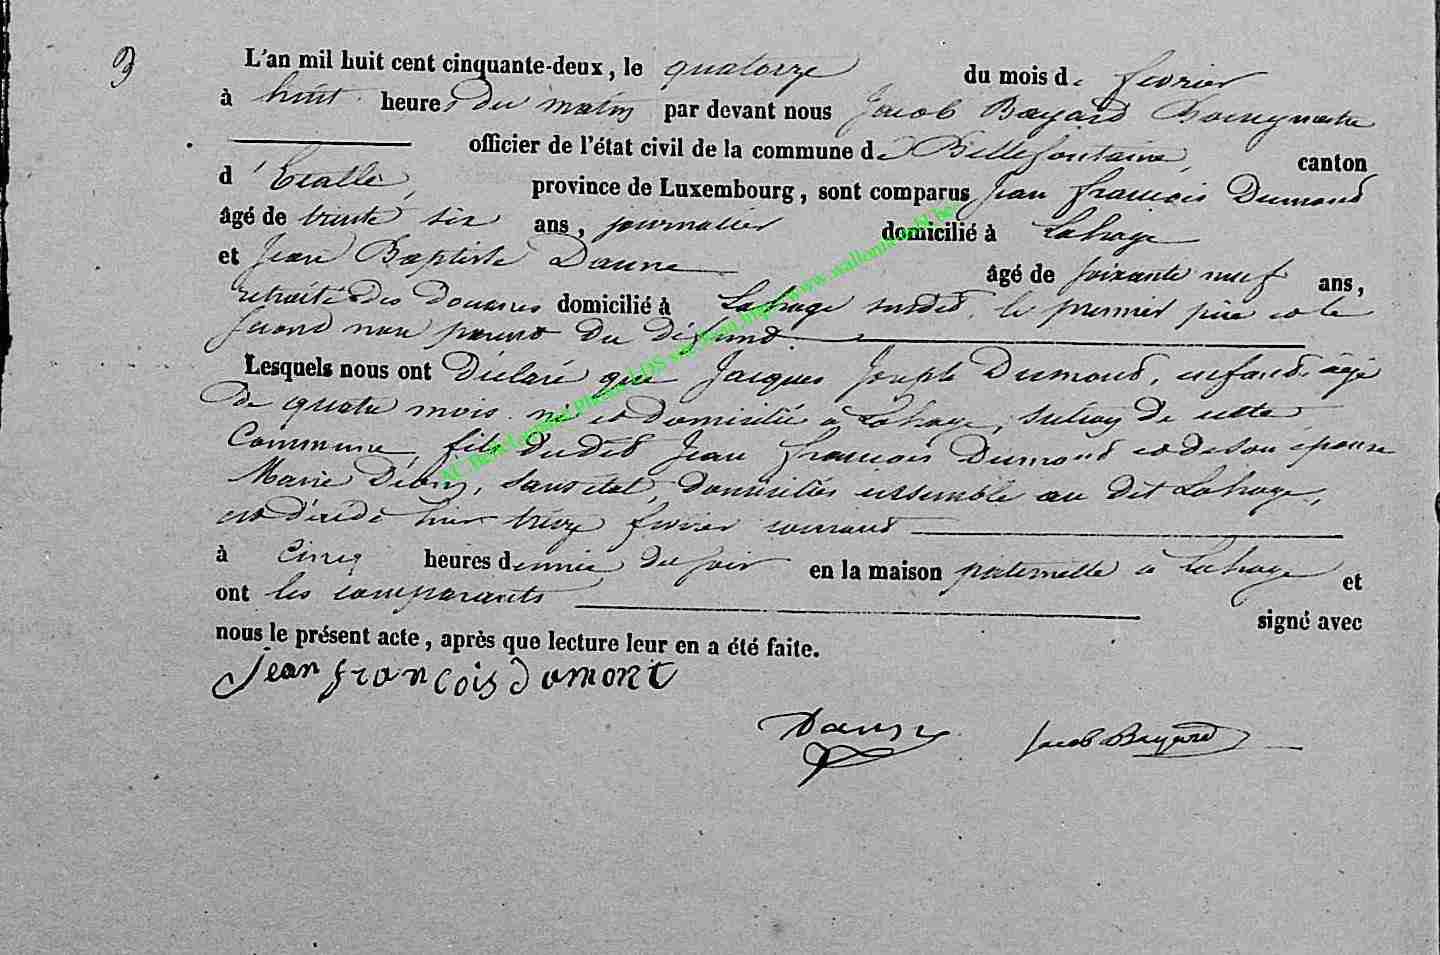 3
L'an mil huit cent cinquante-deux, le quatorze du mois de fevrier
à huit heures du matin par devant nous Jacob Bayard Bourgmestre
officier de l'état civil de la commune de Bellefontaine, canton
d'Etalle, province de Luxembourg, sont comparus Jean françois Dumond
âgé de trente six ans, journalier domicilié à Lahage
et Jean Baptiste âgé de soixante neuf ans,
retraité des douanes domicilié à Lahage susdit, le premier père et le
second non parent du défunt
Lesquels nous ont Déclaré que Jacques Joseph Dumond, enfant âgé
de quatre mois né et domicilié à Lahage, de cette
Commune, fils dudit Jean françois Dumond et de son épouse
Marie, sans état, domiciliés ensemble au dit Lahage,
est décédé hier treize fevrier courant
à cinq heures demie du soir en la maison paternelle à Lahage et
ont les comparants signé avec
nous le présent acte, après que lecture leur en a été faite.
Jean françois dumont
Jacob Bayard